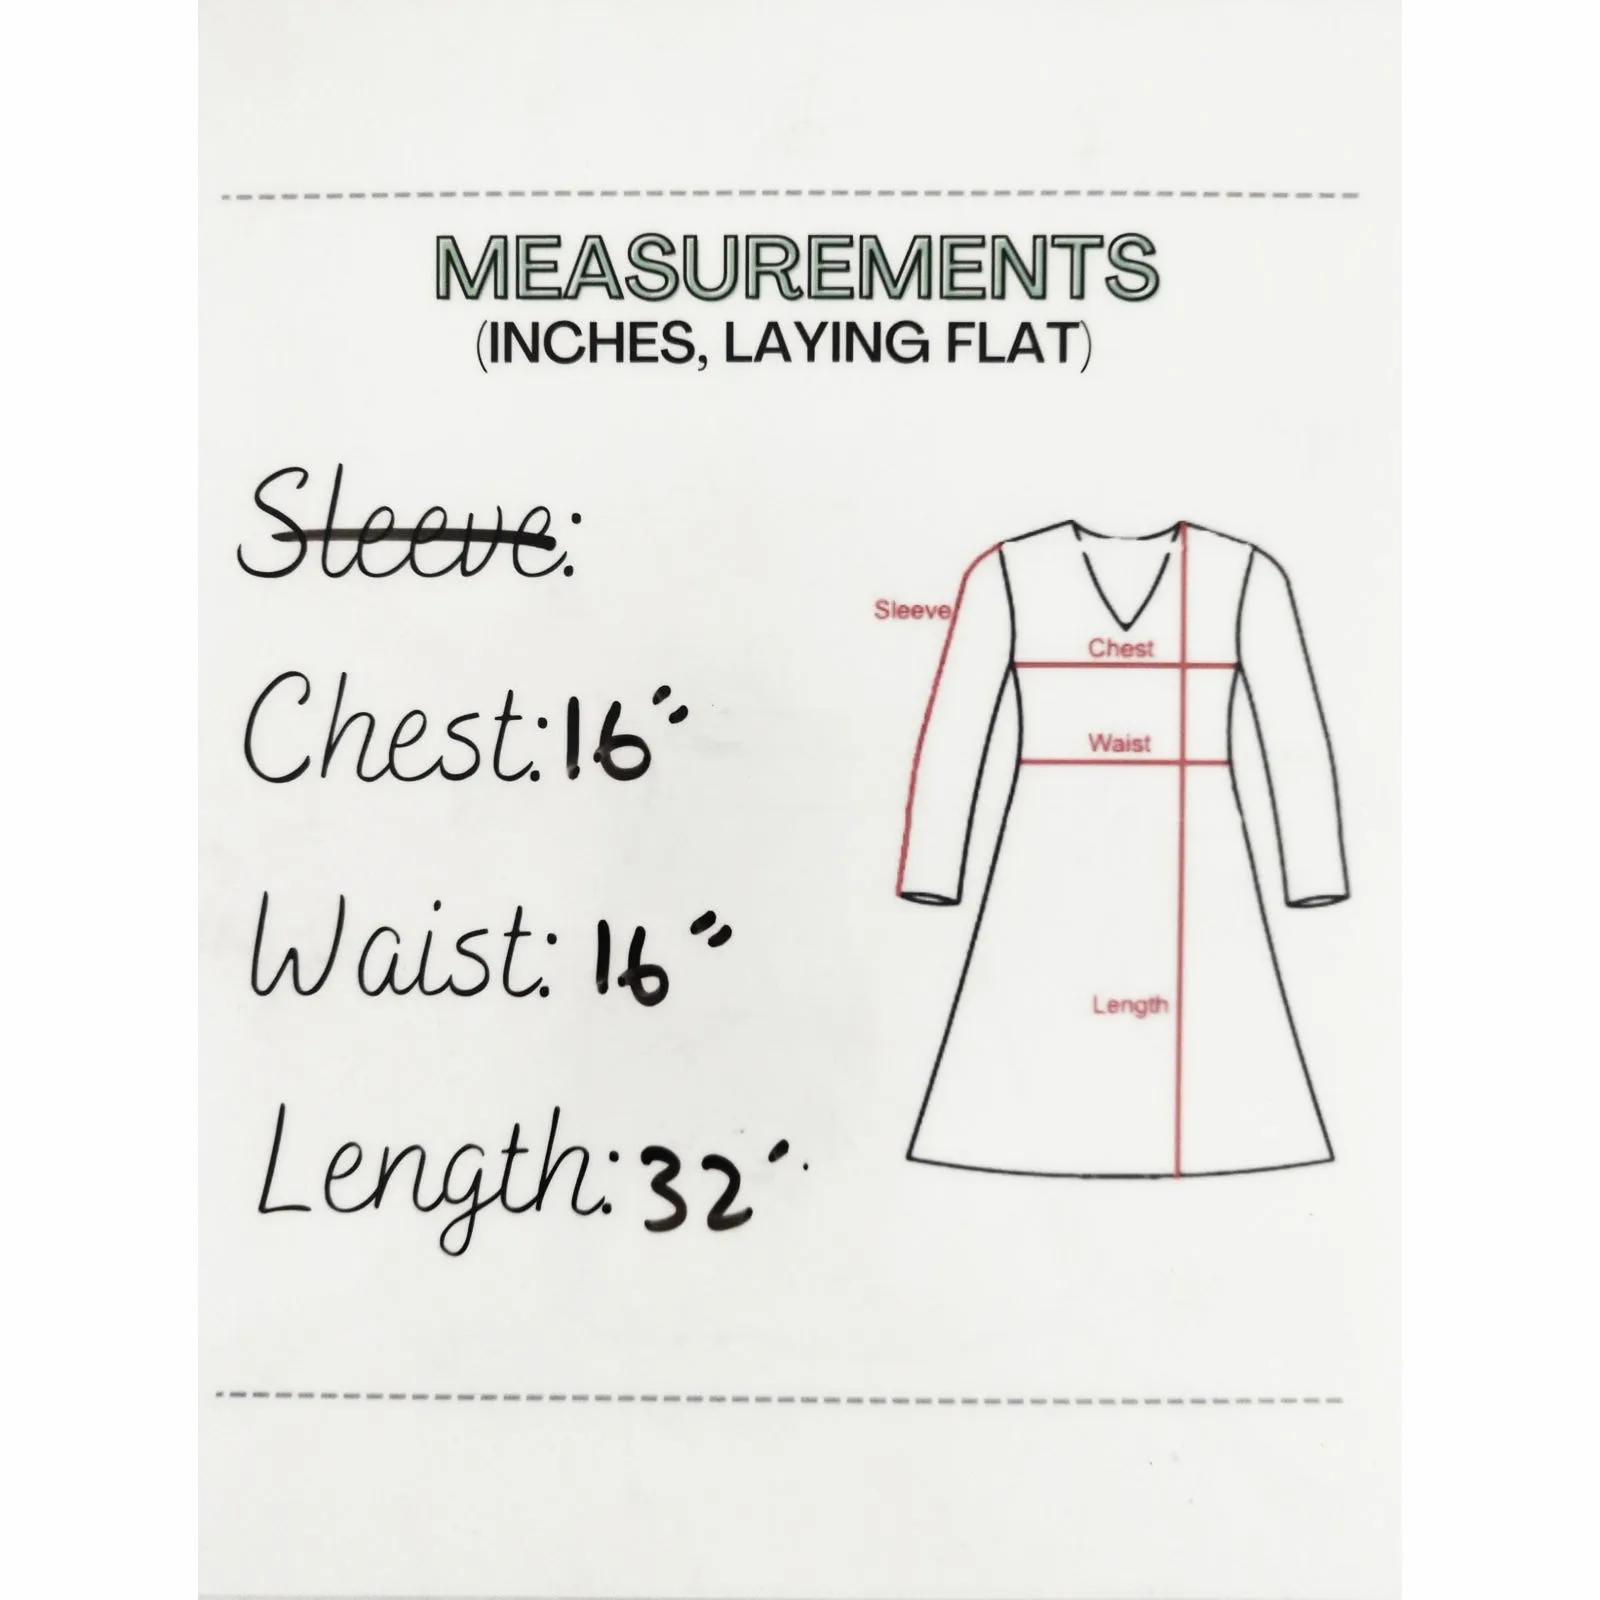 MEASUREMENTS
(INCHES, LAYING FLAT)
Sleeve:
Chest: 16"
Waist: 16"
Length: 32"
Sleeve
Chest
Waist
Length